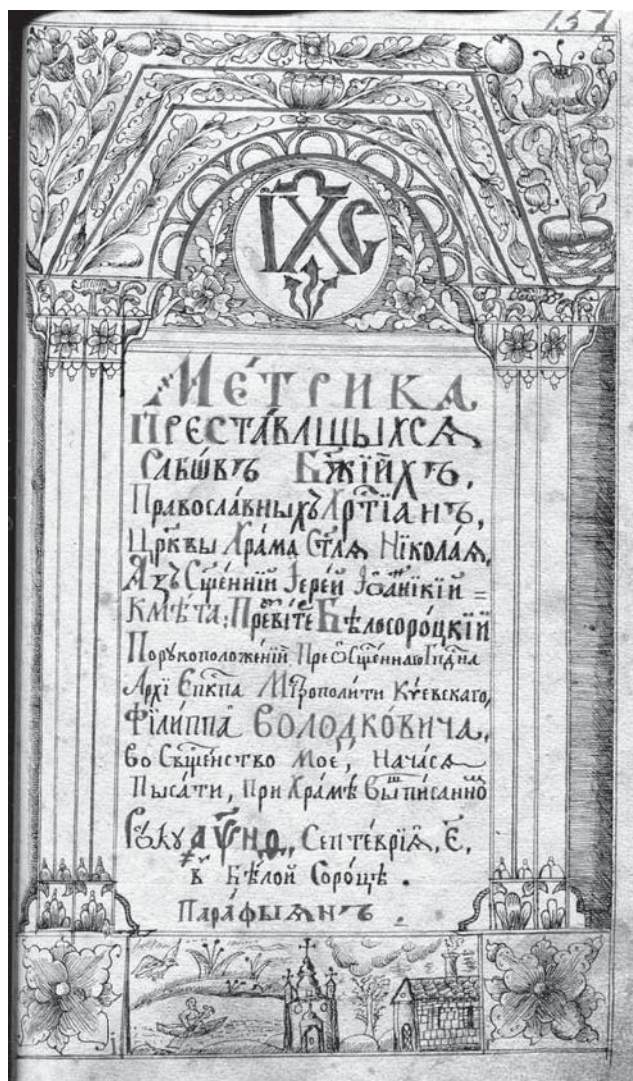 137
ІХС
Метрика
Преставлшыхся
Рабѡвъ Бж҃їйхъ,
Правосла́вныхъ Хрⷭ҇тїанъ,
Цркв҃ы Хра́ма Ст҃ле Нїкола́я,
Азъ Сщ҃е́нній Іере́й Іѡаникїй =
Кмѣ́та; Превіте Бѣлосоро́цкїй
Порукоположе́нїй
Архї Еп҃кпа Митрополи́ти Кїевскаго,
Фїли́ппа Володко́вича,
во Свщ҃е́нство Мое, Нача́ся
Пыса́ти, при Хра́мѣ Вы́шписанно
Року ҂аѱн҃ѳ, Септе́врїа, Е҃,
в Бѣ́лой Соро́цѣ.
Пара́фыянъ.